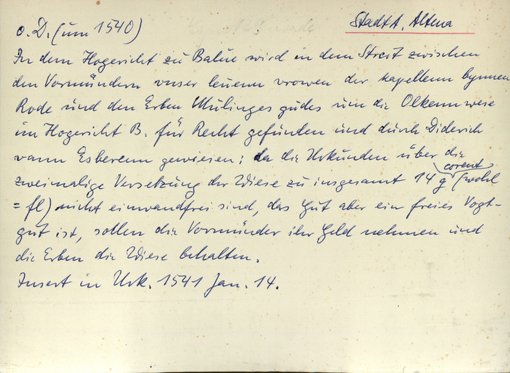 o. D. (um 1540) Stadt A. Altena
In dem Hogericht zu Balve wird in dem Streit zwischen
den Vormündern unser leuenn vrowen der kapellenn bynnen
Rode und den Erben Ululinges gudes um die Olkenn weise
im Hogericht B. für Recht gefunden und durch Diderich
vann Esberenn gewiesen: da die Urkunden über die
zweimalige Versetzung der Wiese zu insgesamt 14 g corent (wohl
= fl) nicht einwandfrei sind, das Gut aber ein freies Vogt-
gut ist, sollen die Vormünder ihr Geld nehmen und
die Erben die Wiese behalten.
Insert in Urk. 1541 Jan. 14.